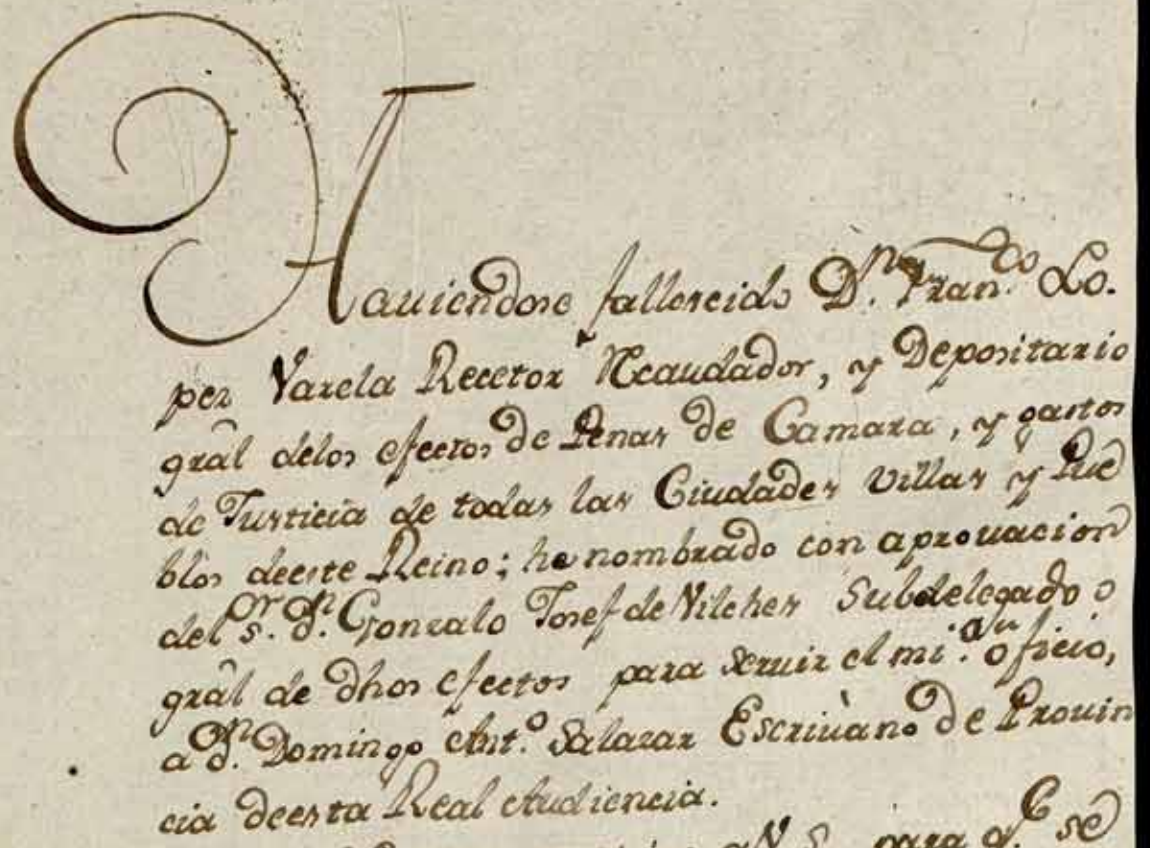 Hauiendose fallescido D.ⁿ Fran.ᶜᵒ Lo.
pez Varela Recetor Recaudador, y Depositario
grâl delos efectos de Penas de Camara, y gastos
de Justicia de todas las Ciudades Villas y Pue
blos deeste Reino; he nombrado con aprouacion
del s.ᵒʳ d.ⁿ Gonzalo Josef de Vilches Subdelegado
grâl de dhos efectos para seruir el mi.ᵒ oficio,
a d.ⁿ Domingo Ant.ᵒ Salazar Escriuano de Prouin
cia deesta Real Audiencia.
para q.ᵉ se